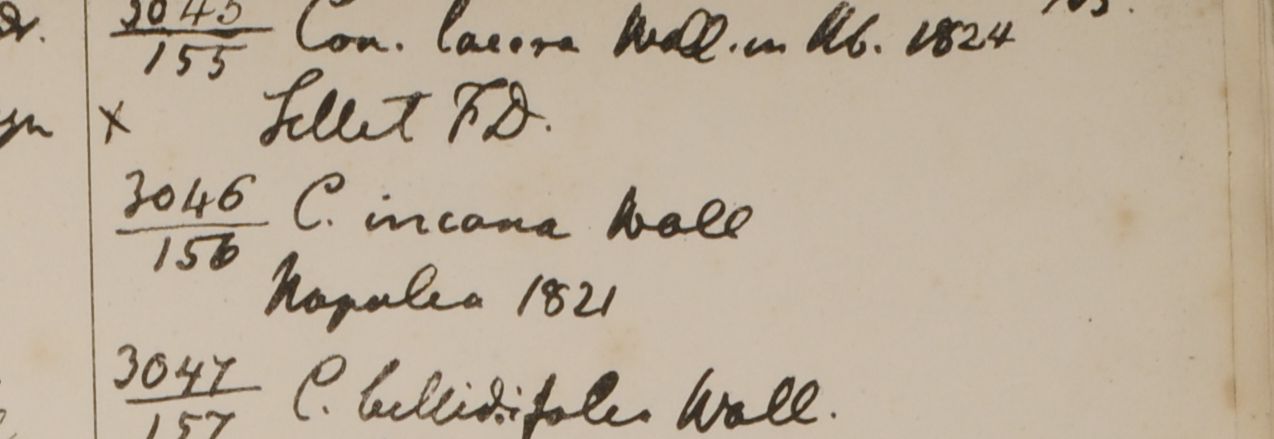 3045/155 Con. lacera Wall. in Hb. 1824
x Sillet F.D.
3046/156 C. incana Wall
Napalea 1821
3047/157 C. bellidifolia Wall.